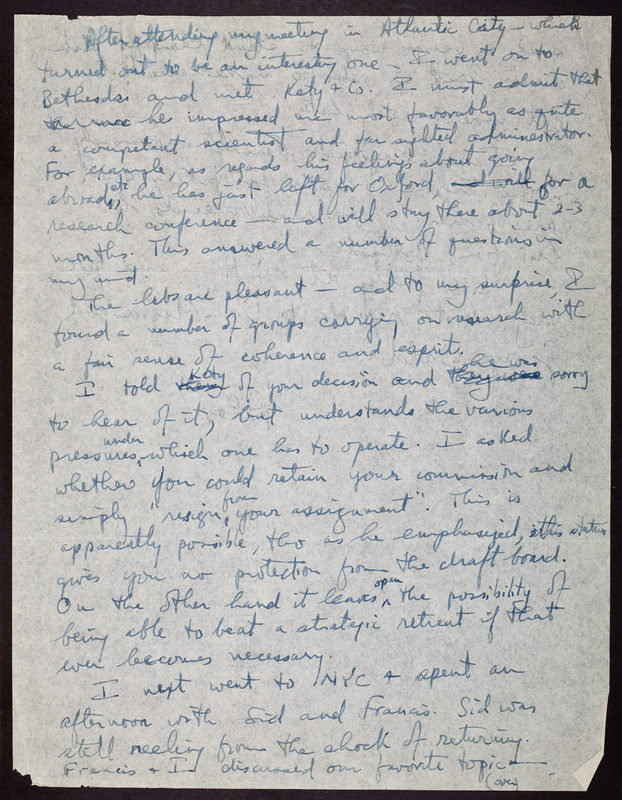 After attending my meeting in Atlantic City – which
turned out to be an interesting one – I went on to
Bethesda and met Kety & Co. I must admit that
he impressed me most favorably as quite
a competant scientist and far sighted administrator.
For example, as regards his feelings about going
abroad, etc, he has just left for Oxford, and will for a
research conference – and will stay there about 2-3
months. This answered a number of questions in
my mind.
The labs are pleasant – and to my surprise, I
found a number of groups carrying on research with
a fair sense of coherence and esprit.
I told they Kety of your decision and they were he was sorry
to hear of it, but understands the various
pressures under which one has to operate. I asked
whether you could retain your commission and
simply "resign from your assignment". This is
apparently possible, tho as he emphasized, this status
gives you no protection from the draft board.
On the other hand it leaves open the possibility of
being able to beat a strategic retreat if that
ever becomes necessary.
I next went to NYC & spent an
afternoon with Sid and Francis. Sid was
still reeling from the shock of returning.
Francis & I discussed our favorite topic –
(over)